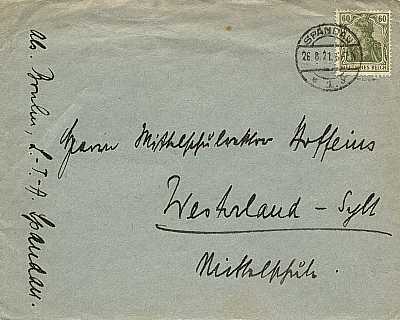 60 60
SPANDAU
26.8.21.
* 1 s
DEUTSCHES REICH
Herrn Mittelschulrektor Hoffeins
Westerland - Sylt
Mittelschule.
Abs. L.-J.-A. Spandau.